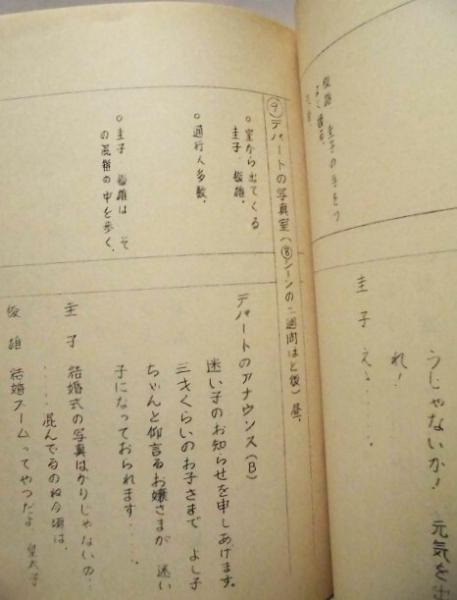 俊雄 圭子の手をつ
よく握る。
うじゃないか! 元気を出
れ!
圭子 ええ……
⑨デパートの写真室(⑧シーンの二週間ほど後)昼、
○室から出てくる
圭子、俊雄、
○通行人多数、
○圭子 俊雄は そ
の混雑の中を歩く、
デパートのアナウンス(B)
迷い子のお知らせを申しあげます。
三才くらいのお子さまで よし子
ちゃんと仰言るお嬢さまが 迷い
子になっておられます……
圭子 結婚式の写真ばかりじゃないの…
……混んでるのね今頃は、
俊雄 結婚ブームってやつだよ 皇太子